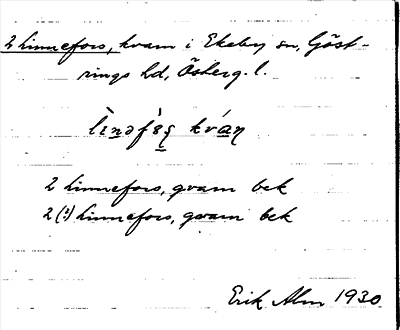 2 Linnefors, kvarn i Ekeby sn, Göst-
rings hd, Österg. l.
2 Linnefors, qvarn bek
2 (!) Linnefors, qvarn bek
Erik Alm 1930